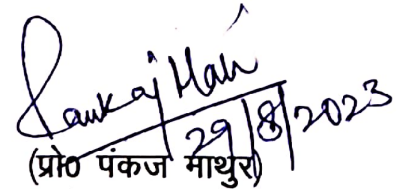 Pankaj Math
29/8/2023
(प्रो0 पंकज माथुर)